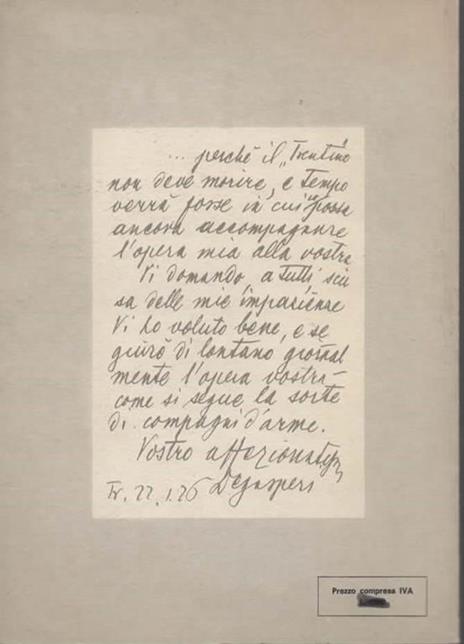 ... perchè il „Trentino"
non deve morire, e tempo
verrà forse in cui possa
ancora accompagnare
l'opera mia alla vostra
Vi domando a tutti scu
sa delle mie impazienze
Vi ho voluto bene, e se
guirò di lontano giornal
mente l'opera vostra –
come si segue la sorte
di compagni d'arme.
Vostro affezionatiss
Tr. 22.1.26 Degasperi
Prezzo compresa IVA